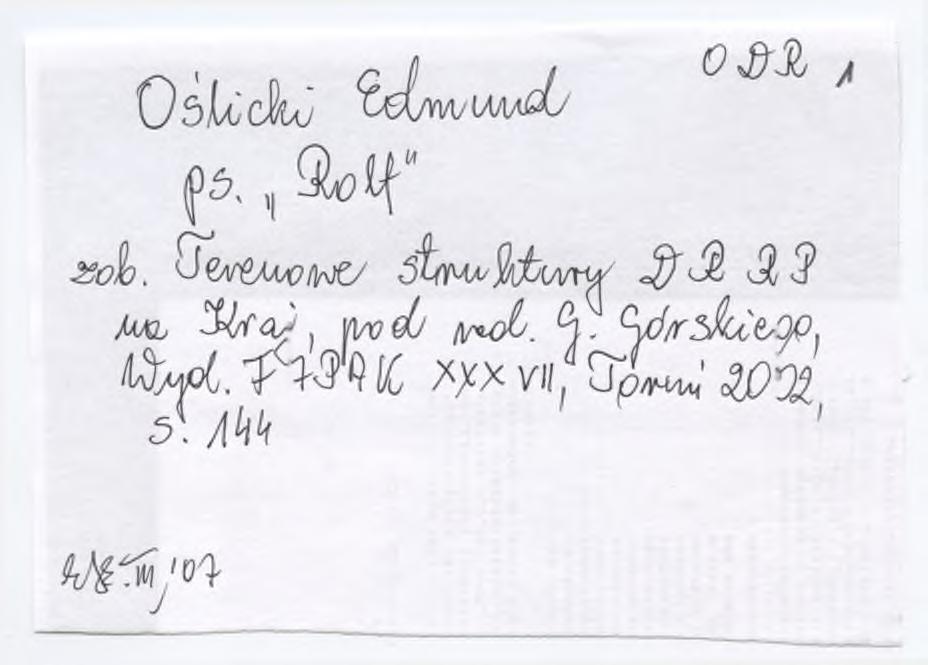 ODR 1
Oślicki Edmund
ps. „Rolf"
zob. Terenowe struktury DR RP
na Kraj, pod red. G. Górskiego,
Wyd. FAPAK XXXVII, Toruń 2002,
s. 144
III '07